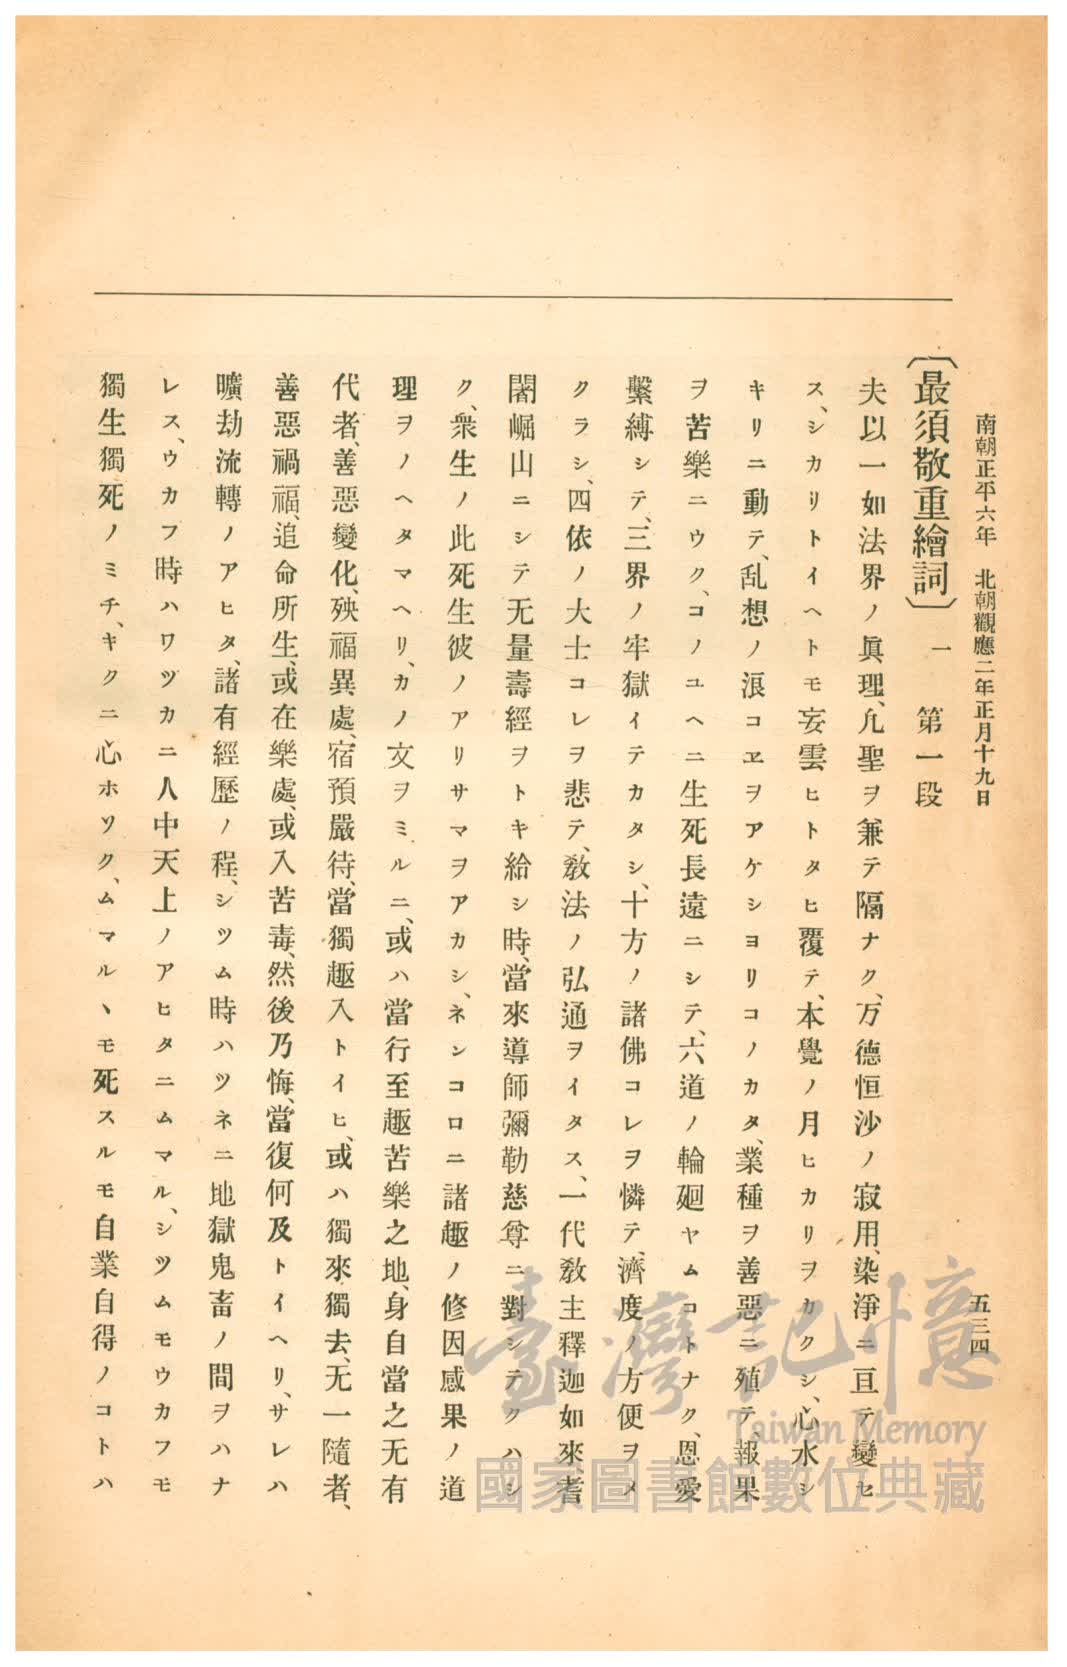 南朝正平六年　北朝觀應二年正月十九日　五三四
〔最須敬重繪詞〕　一　第一段
夫以一如法界ノ眞理、凡聖ヲ兼テ隔ナク、万德恒沙ノ寂用、染淨ニ亘テ變セ
ス、シカリトイヘトモ妄雲ヒトタヒ覆テ、本覺ノ月ヒカリヲカクシ、心水シ
キリニ動テ、乱想ノ浪コヱヲアケシヨリコノカタ、業種ヲ善惡ニ殖テ報果
ヲ苦樂ニウク、コノユヘニ生死長遠ニシテ、六道ノ輪廻ヤムコトナク、恩愛
繫縛シテ、三界ノ牢獄イテカタシ、十方ノ諸佛コレヲ憐テ、濟度ノ方便ヲメ
クラシ、四依ノ大士コレヲ悲テ、敎法ノ弘通ヲイタス、一代敎主釋迦如來、耆
闍崛山ニシテ无量壽經ヲトキ給シ時、當來導師彌勒慈尊ニ對シテクハシ
ク、衆生ノ此死生彼ノアリサマヲアカシ、ネンコロニ諸趣ノ修因感果ノ道
理ヲノヘタマヘリ、カノ文ヲミルニ、或ハ當行至趣苦樂之地、身自當之无有
代者、善惡變化、殃福異處、宿預嚴待、當獨趣入トイヒ、或ハ獨來獨去、无一隨者、
善惡禍福、追命所生、或在樂處、或入苦毒、然後乃悔、當復何及トイヘリ、サレハ
曠劫流轉ノアヒタ、諸有經歷ノ程、シツム時ハツネニ地獄鬼畜ノ間ヲハナ
レス、ウカフ時ハワヅカニ人中天上ノアヒタニムマル、シツムモウカフモ
獨生獨死ノミチ、キクニ心ホソク、ムマルヽモ死スルモ自業自得ノコトハ
臺灣記憶
Taiwan Memory
國家圖書館數位典藏